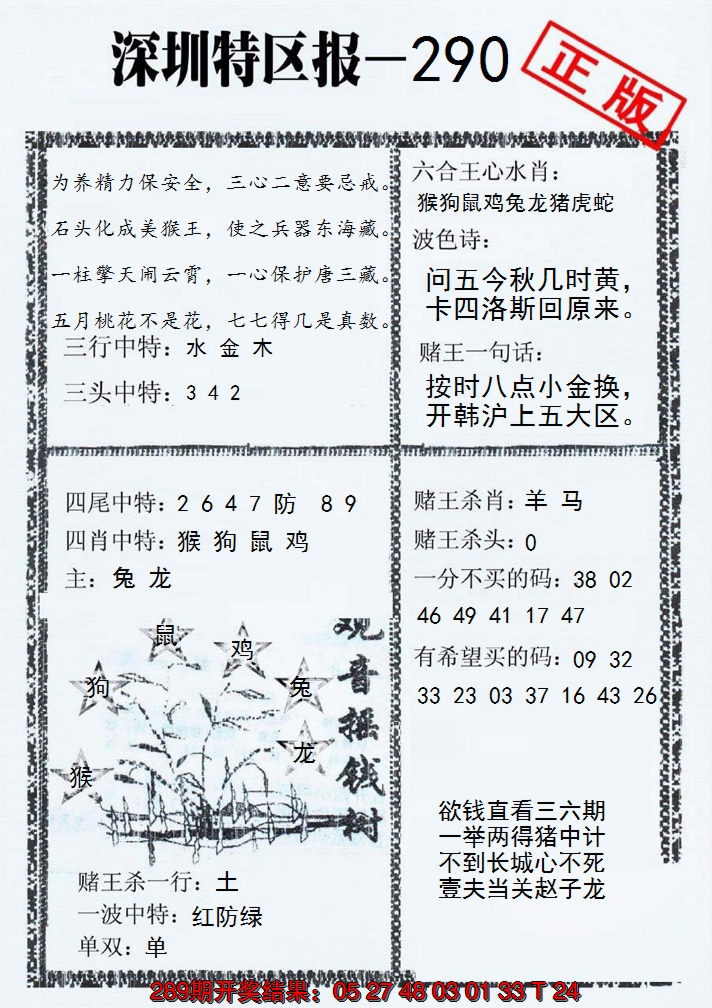 深圳特区报—290
正版
为养精力保安全，三心二意要忌戒。
石头化成美猴王，使之兵器东海藏。
一柱擎天闹云霄，一心保护唐三藏。
五月桃花不是花，七七得几是真数。
三行中特：水 金 木
三头中特：3 4 2
六合王心水肖：
猴狗鼠鸡兔龙猪虎蛇
波色诗：
问五今秋几时黄，
卡四洛斯回原来。
赌王一句话：
按时八点小金换，
开韩沪上五大区。
四尾中特：2 6 4 7 防 8 9
四肖中特：猴 狗 鼠 鸡
主：兔 龙
鼠
鸡
狗
兔
龙
猴
观音摇钱树
赌王杀一行：土
一波中特：红防绿
单双：单
赌王杀肖：羊 马
赌王杀头：0
一分不买的码：38 02
46 49 41 17 47
有希望买的码：09 32
33 23 03 37 16 43 26
欲钱直看三六期
一举两得猪中计
不到长城心不死
壹夫当关赵子龙
289期开奖结果：05 27 48 03 01 33 T 24